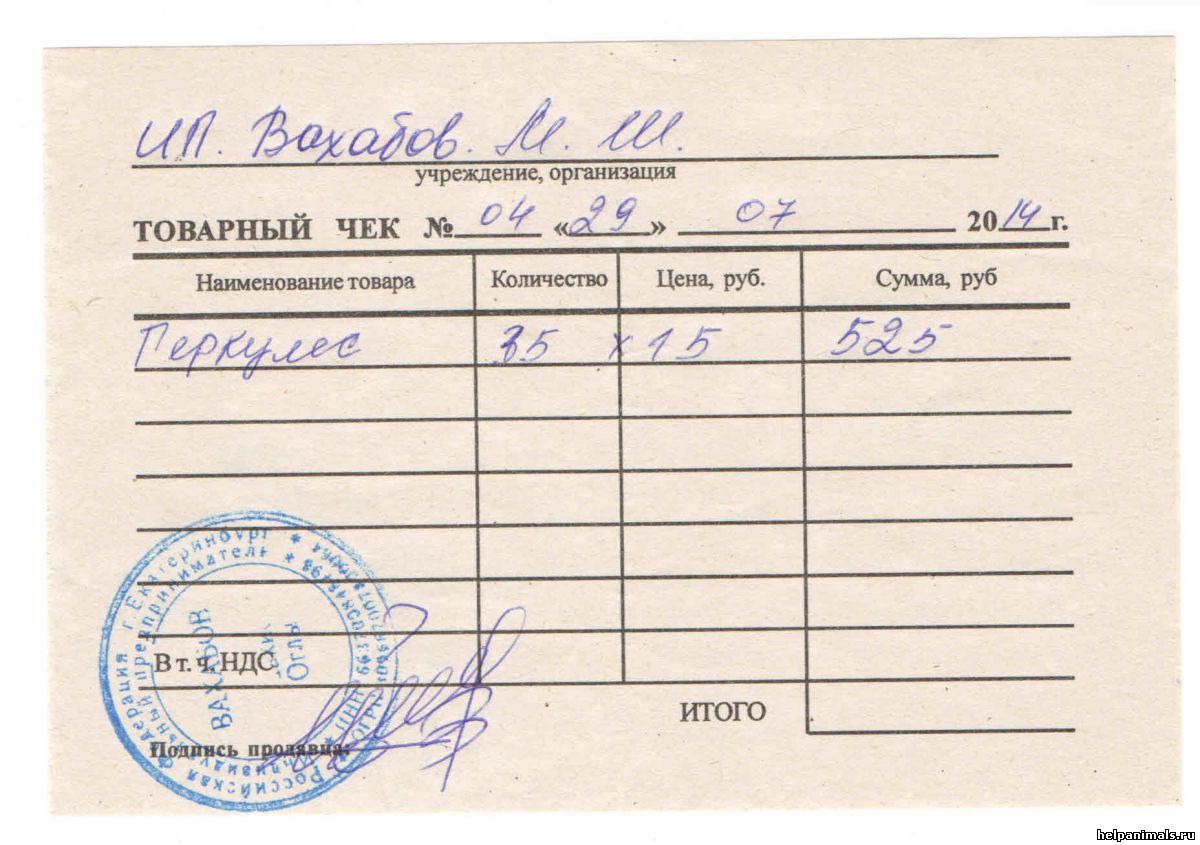 ИП. Вахабов. М. Ш.
учреждение, организация
ТОВАРНЫЙ ЧЕК № 04 «29» 07 2014 г.
Наименование товара Количество Цена, руб. Сумма, руб
Геркулес 35 x 15 525
В т. ч. НДС
ИТОГО
Подпись продавца:
Российская Федерация г. Екатеринбург
Индивидуальный предприниматель
ВАХАБОВ
Оглы
ИНН
ОГРН
helpanimals.ru